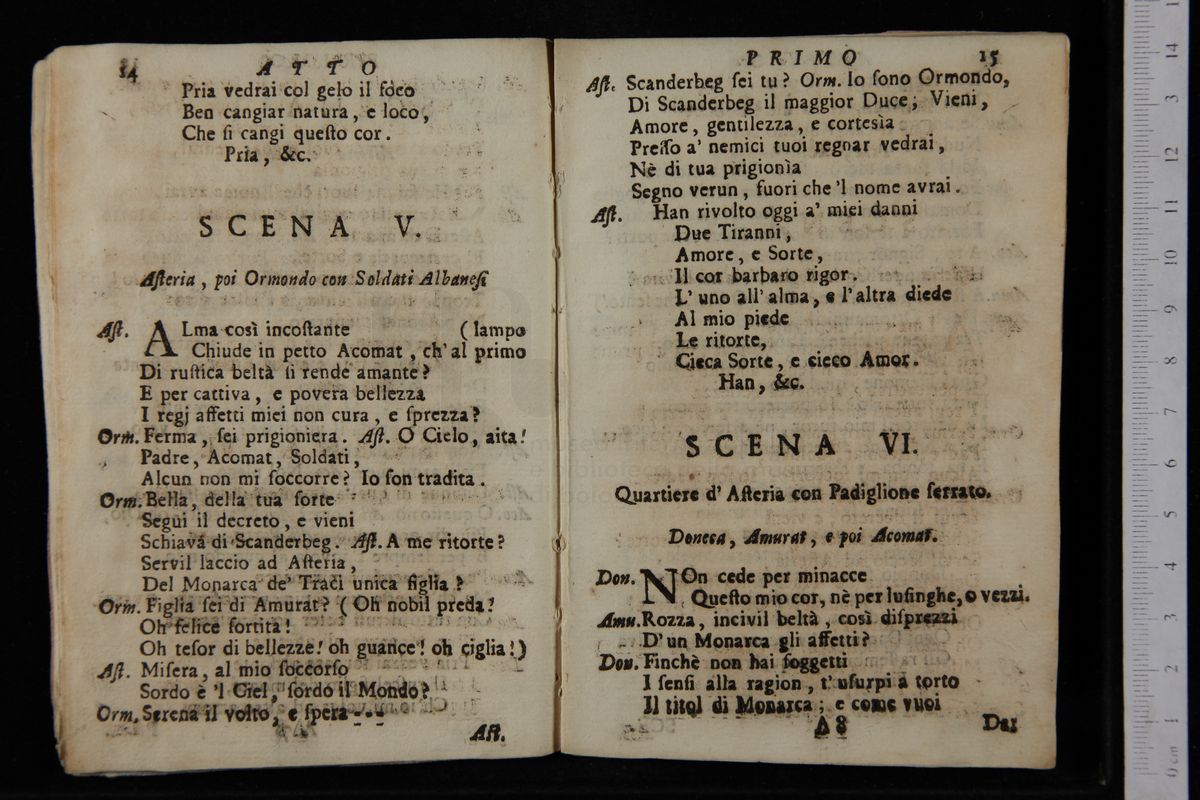 14 ATTO
Pria vedrai col gelo il foco
Ben cangiar natura, e loco,
Che ſi cangi queſto cor.
Pria, &c.
SCENA V.
Aſteria, poi Ormondo con Soldati Albaneſi
Aſt. ALma così incoſtante (lampo
Chiude in petto Acomat, ch'al primo
Di ruſtica beltà ſi rende amante?
E per cattiva, e povera bellezza
I regj affetti miei non cura, e ſprezza?
Orm. Ferma, ſei prigioniera. Aſt. O Cielo, aita!
Padre, Acomat, Soldati,
Alcun non mi ſoccorre? Io ſon tradita.
Orm. Bella, della tua ſorte
Segui il decreto, e vieni
Schiava di Scanderbeg. Aſt. A me ritorte?
Servil laccio ad Aſteria,
Del Monarca de' Traci unica figlia?
Orm. Figlia ſei di Amurat? (Oh nobil preda!
Oh felice ſortita!
Oh teſor di bellezze! oh guance! oh ciglia!)
Aſt. Miſera, al mio ſoccorſo
Sordo è 'l Ciel, ſordo il Mondo?
Orm. Serena il volto, e ſpera---
Aſt.
PRIMO 15
Aſt. Scanderbeg ſei tu? Orm. Io ſono Ormondo,
Di Scanderbeg il maggior Duce; Vieni,
Amore, gentilezza, e cortesìa
Preſſo a' nemici tuoi regnar vedrai,
Nè di tua prigionìa
Segno verun, fuori che 'l nome avrai.
Aſt. Han rivolto oggi a' miei danni
Due Tiranni,
Amore, e Sorte,
Il cor barbaro rigor.
L' uno all' alma, e l'altra diede
Al mio piede
Le ritorte,
Cieca Sorte, e cieco Amor.
Han, &c.
SCENA VI.
Quartiere d' Aſteria con Padiglione ſerrato.
Doneca, Amurat, e poi Acomat.
Don. NOn cede per minacce
Queſto mio cor, nè per luſinghe, o vezzi.
Amu. Rozza, incivil beltà, così diſprezzi
D' un Monarca gli affetti?
Don. Finchè non hai ſoggetti
I ſenſi alla ragion, t' uſurpi a torto
Il titol di Monarca; e come vuoi
A 8 Dar